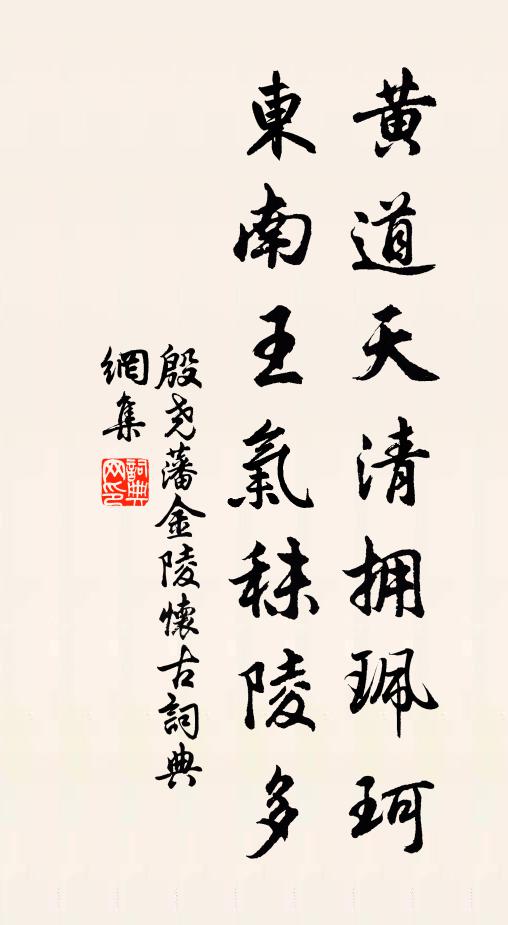 黄道天清拥珮珂
東南王氣秣陵多
殷尧藩金陵懷古詞典
網集
詞典
网印